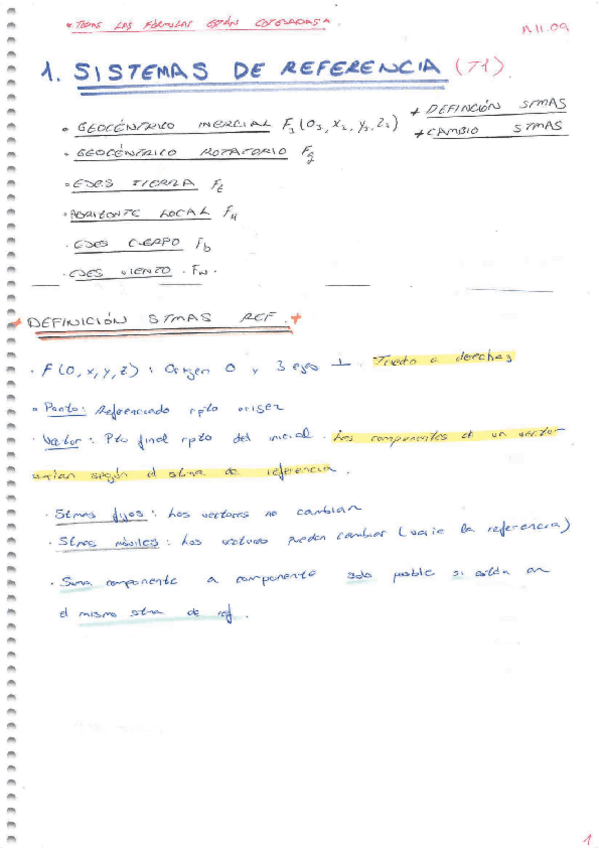 * TODAS LAS FÓRMULAS ESTÁN COTEJADAS *
A11.09
1. SISTEMAS DE REFERENCIA (T1)
• GEOCÉNTRICO INERCIAL F₁(O₁, X₁, Y₁, Z₁)
+ DEFINICIÓN STMAS
+ CAMBIO STMAS
• GEOCÉNTRICO ROTATORIO Fg
• EJES TIERRA FE
• HORIZONTE LOCAL FH
• EJES CUERPO Fb
• EJES VIENTO. Fw
+ DEFINICIÓN STMAS REF. +
• F(O, x, y, z): Origen O y 3 ejes ⊥. Triedo a derechas
• Punto: Referenciado rpto origen
• Vector: Pto final rpto del inicial. Las componentes de un vector
varían según el stma de referencia.
• Stmas fijos: Los vectores no cambian
• Stmas móviles: Los vectores pueden cambiar (varíe la referencia)
• Suma componente a componente solo posible si están en
el mismo stma de ref.
1